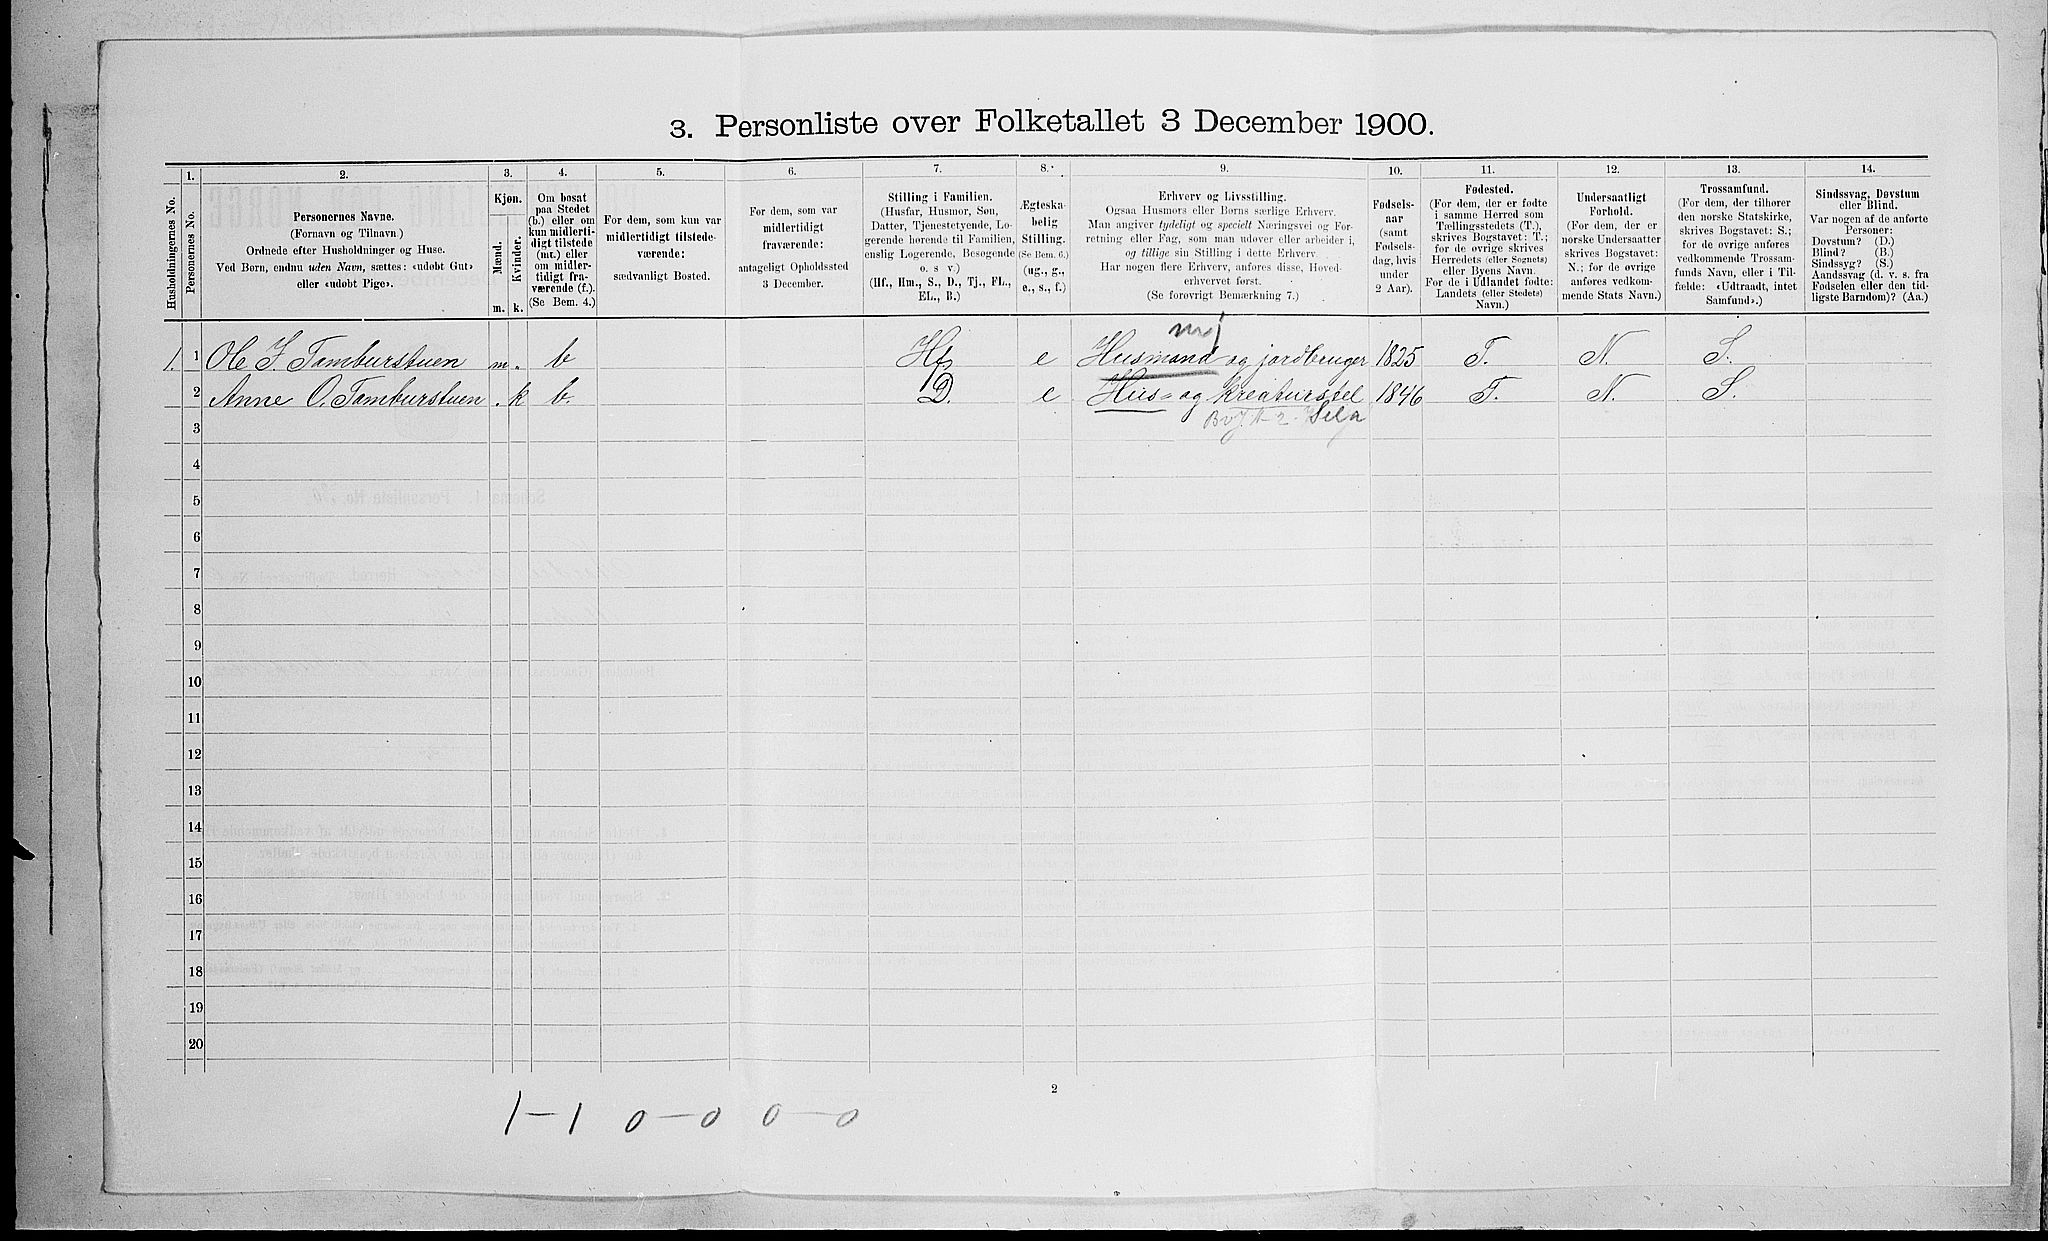 3. Personliste over Folketallet 3 December 1900.
1. 2. 3. 4. 5. 6. 7. 8. 9. 10. 11. 12. 13. 14.
Husholdningernes No.
Personernes No.
Personernes Navne.
(Fornavn og Tilnavn.)
Ordnede efter Husholdninger og Huse.
Ved Børn, endnu uden Navn, sættes: «udøbt Gut»
eller «udøbt Pige».
Kjøn.
Mænd.
Kvinder.
m. k.
Om bosat
paa Stedet
(b.) eller om
kun midlerti-
digt tilstede
(mt.) eller
om midler-
tidigt fra-
værende (f.).
(Se Bem. 4.)
For dem, som kun var
midlertidigt tilstede-
værende:
sædvanligt Bosted.
For dem, som var
midlertidigt
fraværende:
antageligt Opholdssted
3 December.
Stilling i Familien.
(Husfar, Husmor, Søn,
Datter, Tjenestetyende, Lo-
gerende hørende til Familien,
enslig Logerende, Besøgende
o. s v.)
(Hf., Hm., S., D., Tj., FL.,
EL., B.)
Ægteska-
belig
Stilling.
(Se Bem. 6.)
(ug., g.,
e., s., f.)
Erhverv og Livsstilling.
Ogsaa Husmors eller Børns særlige Erhverv.
Man angiver tydeligt og specielt Næringsvei og For-
retning eller Fag, som man udøver eller arbeider i,
og tillige sin Stilling i dette Erhverv.
Har nogen flere Erhverv, anføres disse, Hoved-
erhvervet først.
(Se forøvrigt Bemærkning 7.)
Fødsels-
aar
(samt
Fødsels-
dag, hvis
under
2 Aar).
Fødested.
(For dem, der er fødte
i samme Herred som
Tællingsstedets (T.),
skrives Bogstavet: T.;
for de øvrige skrives
Herredets (eller Sognets)
eller Byens Navn.
For de i Udlandet fødte:
Landets (eller Stedets)
Navn.)
Undersaatligt
Forhold.
(For dem, der er
norske Undersaatter
skrives Bogstavet:
N.; for de øvrige
anføres vedkom-
mende Stats Navn.)
Trossamfund.
(For dem, der tilhører
den norske Statskirke,
skrives Bogstavet: S.;
for de øvrige anføres
vedkommende Trossam-
funds Navn, eller i Til-
fælde: «Udtraadt, intet
Samfund».)
Sindssvag, Døvstum
eller Blind.
Var nogen af de anførte
Personer:
Døvstum? (D.)
Blind? (B.)
Sindssyg? (S.)
Aandssvag (d. v. s. fra
Fødselen eller den tid-
ligste Barndom)? (Aa.)
mj
1. 1 Ole J. Tamburstuen m. b Hf e Husmand og jordbruger 1825 T. N. S.
2 Anne O. Tamburstuen . k b. D. e Hus- og kreaturstel 1846 T. N. S.
3
4
5
6
7
8
9
10
11
12
13
14
15
16
17
18
19
20
2
1-1 0-0 0-0